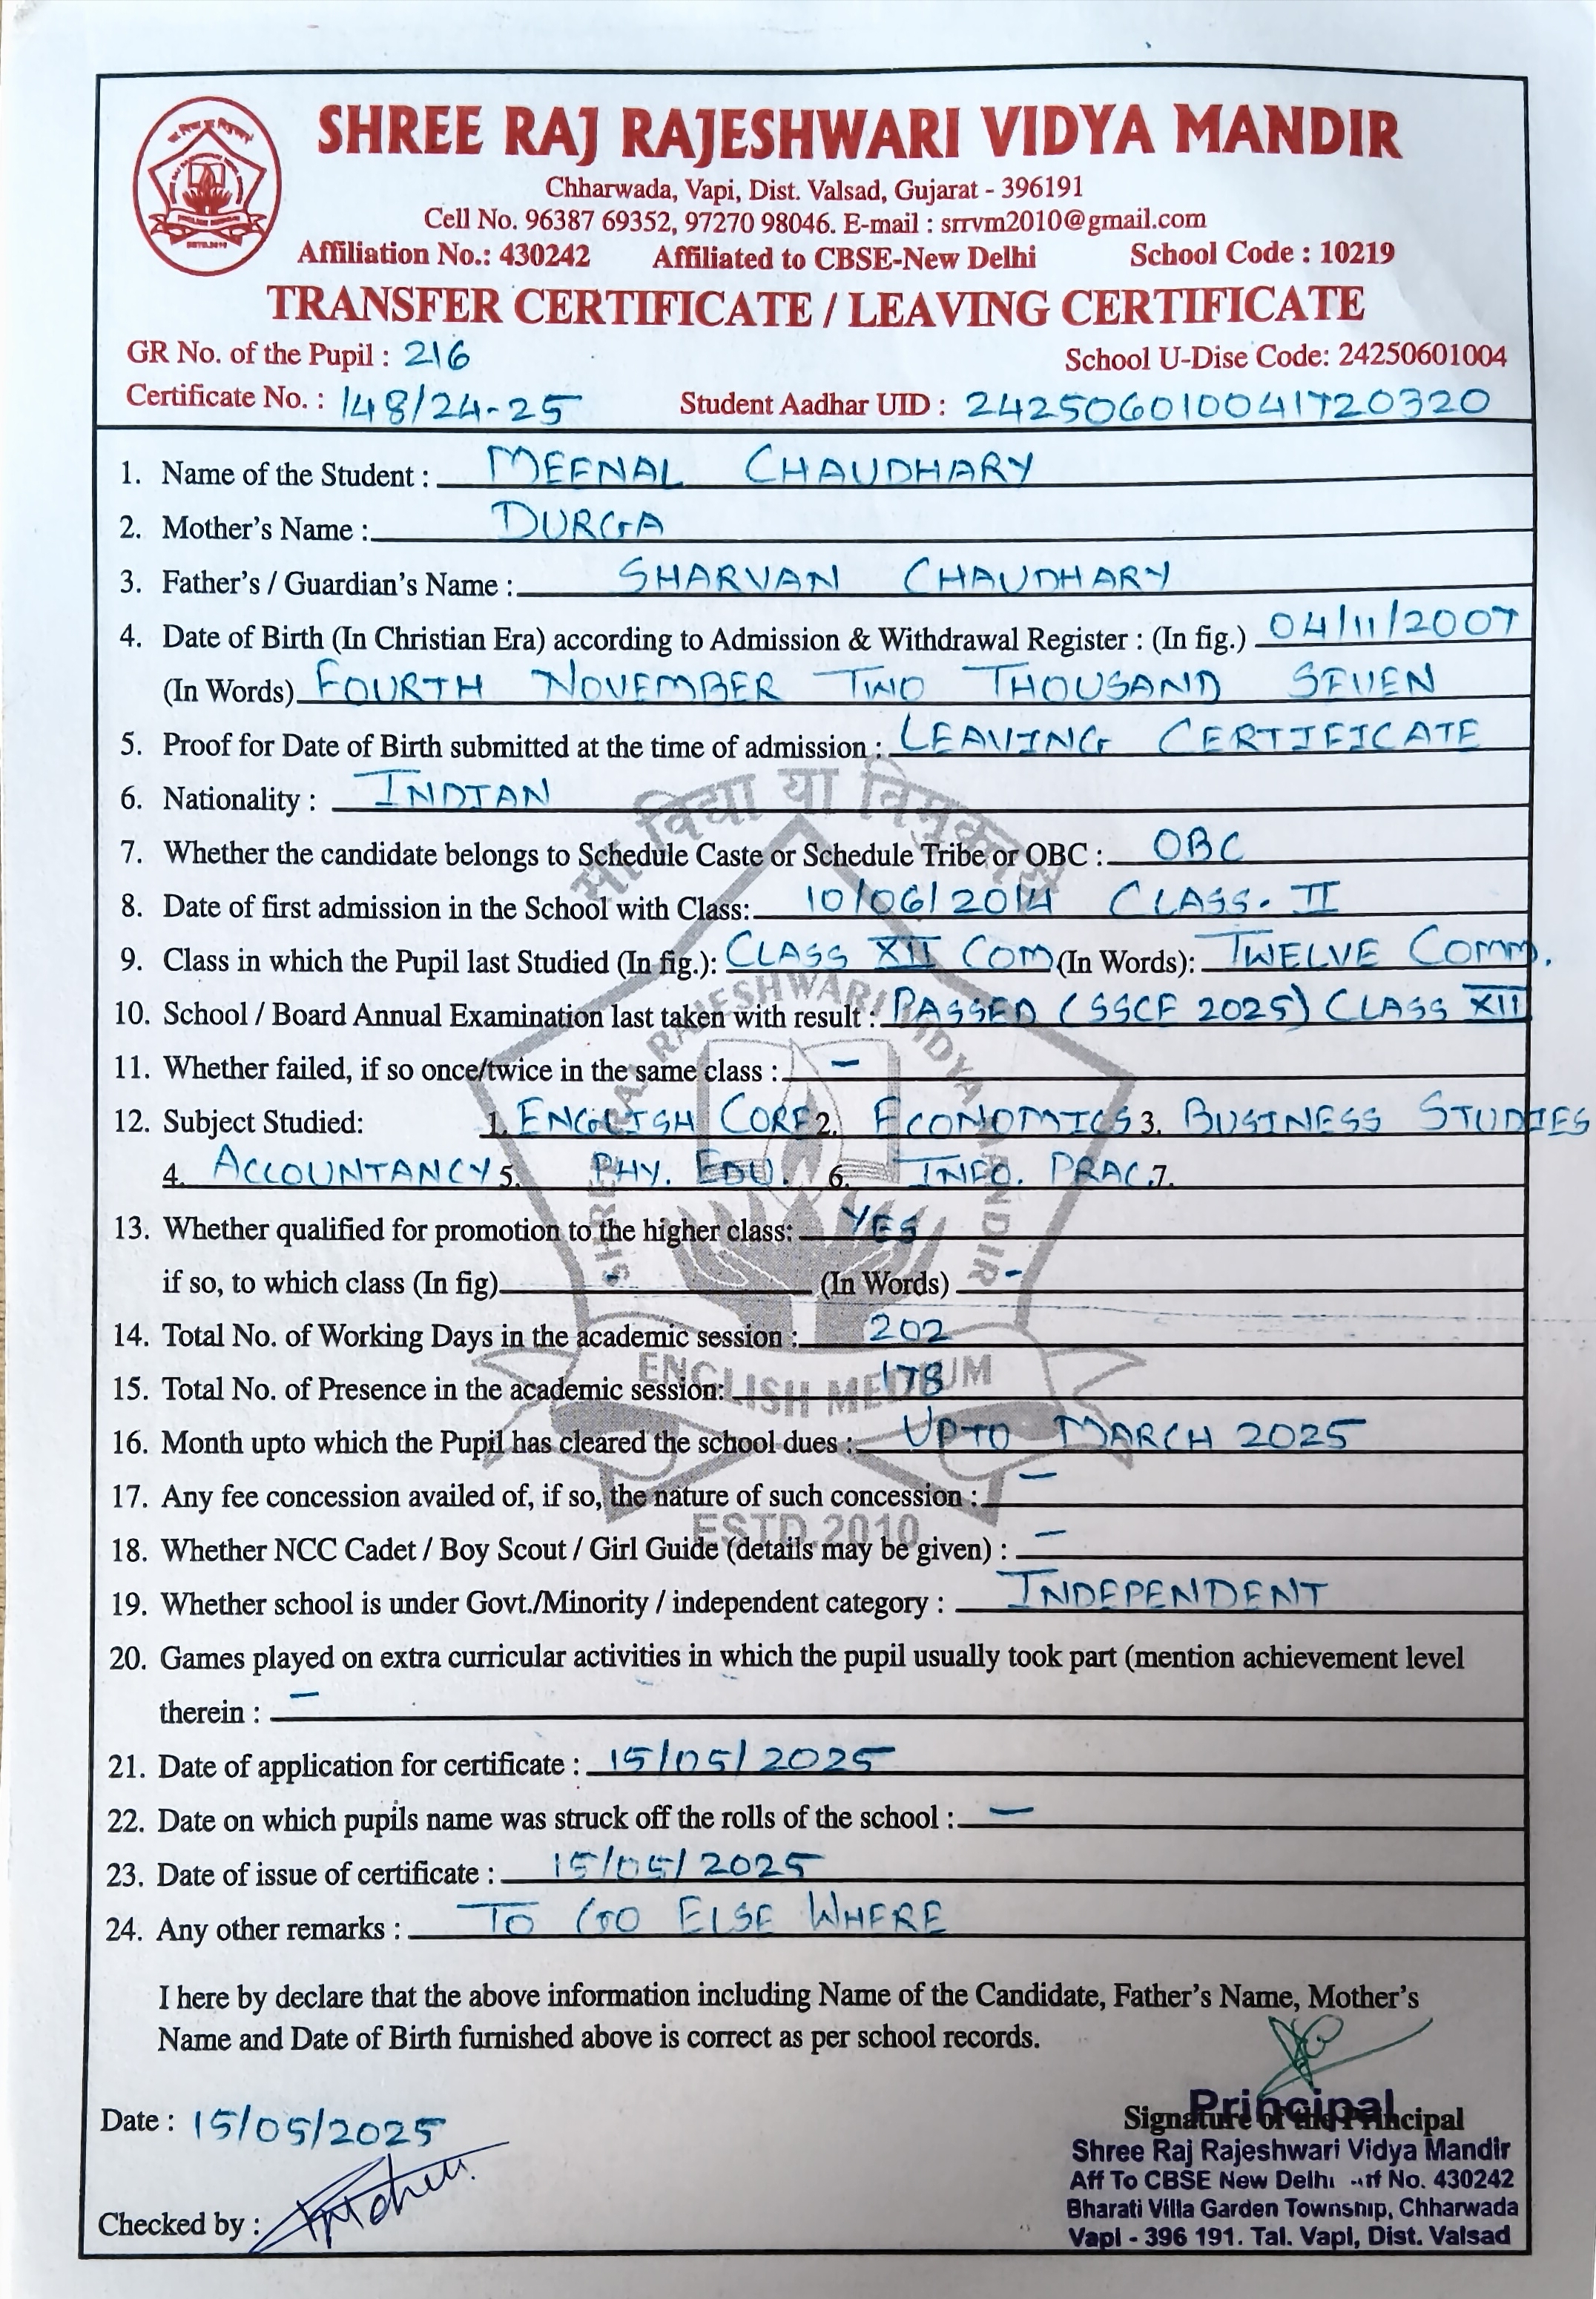 SHREE RAJ RAJESHWARI VIDYA MANDIR
Chharwada, Vapi, Dist. Valsad, Gujarat - 396191
Cell No. 96387 69352, 97270 98046. E-mail : srrvm2010@gmail.com
Affiliation No.: 430242 Affiliated to CBSE-New Delhi School Code : 10219
TRANSFER CERTIFICATE / LEAVING CERTIFICATE
GR No. of the Pupil : 216 School U-Dise Code: 24250601004
Certificate No. : 148/24-25 Student Aadhar UID : 242506010041720320
1. Name of the Student : MEENAL CHAUDHARY
2. Mother's Name : DURGA
3. Father's / Guardian's Name : SHARVAN CHAUDHARY
4. Date of Birth (In Christian Era) according to Admission & Withdrawal Register : (In fig.) 04/11/2007
(In Words) FOURTH NOVEMBER TWO THOUSAND SEVEN
5. Proof for Date of Birth submitted at the time of admission : LEAVING CERTIFICATE
6. Nationality : INDIAN
सा विद्या या विमुक्तये
7. Whether the candidate belongs to Schedule Caste or Schedule Tribe or OBC : OBC
8. Date of first admission in the School with Class: 10/06/2014 CLASS. II
9. Class in which the Pupil last Studied (In fig.): CLASS XII COM (In Words): TWELVE COMM.
SHREE RAJ RAJESHWARI VIDYA MANDIR
10. School / Board Annual Examination last taken with result : PASSED (SSCE 2025) CLASS XII
11. Whether failed, if so once/twice in the same class : -
12. Subject Studied: 1. ENGLISH CORE 2. ECONOMICS 3. BUSINESS STUDIES
4. ACCOUNTANCY 5. PHY. EDU. 6. INFO. PRAC. 7.
13. Whether qualified for promotion to the higher class: YES
if so, to which class (In fig) - (In Words) -
14. Total No. of Working Days in the academic session : 202
ENGLISH MEDIUM
15. Total No. of Presence in the academic session: 178
16. Month upto which the Pupil has cleared the school dues : UPTO MARCH 2025
17. Any fee concession availed of, if so, the nature of such concession : -
ESTD.2010
18. Whether NCC Cadet / Boy Scout / Girl Guide (details may be given) : -
19. Whether school is under Govt./Minority / independent category : INDEPENDENT
20. Games played on extra curricular activities in which the pupil usually took part (mention achievement level
therein : -
21. Date of application for certificate : 15/05/2025
22. Date on which pupils name was struck off the rolls of the school : -
23. Date of issue of certificate : 15/05/2025
24. Any other remarks : TO GO ELSE WHERE
I here by declare that the above information including Name of the Candidate, Father's Name, Mother's
Name and Date of Birth furnished above is correct as per school records.
Date : 15/05/2025
Checked by :
Principal
Signature of the Principal
Shree Raj Rajeshwari Vidya Mandir
Aff To CBSE New Delhi No. 430242
Bharati Villa Garden Township, Chharwada
Vapi - 396 191. Tal. Vapi, Dist. Valsad